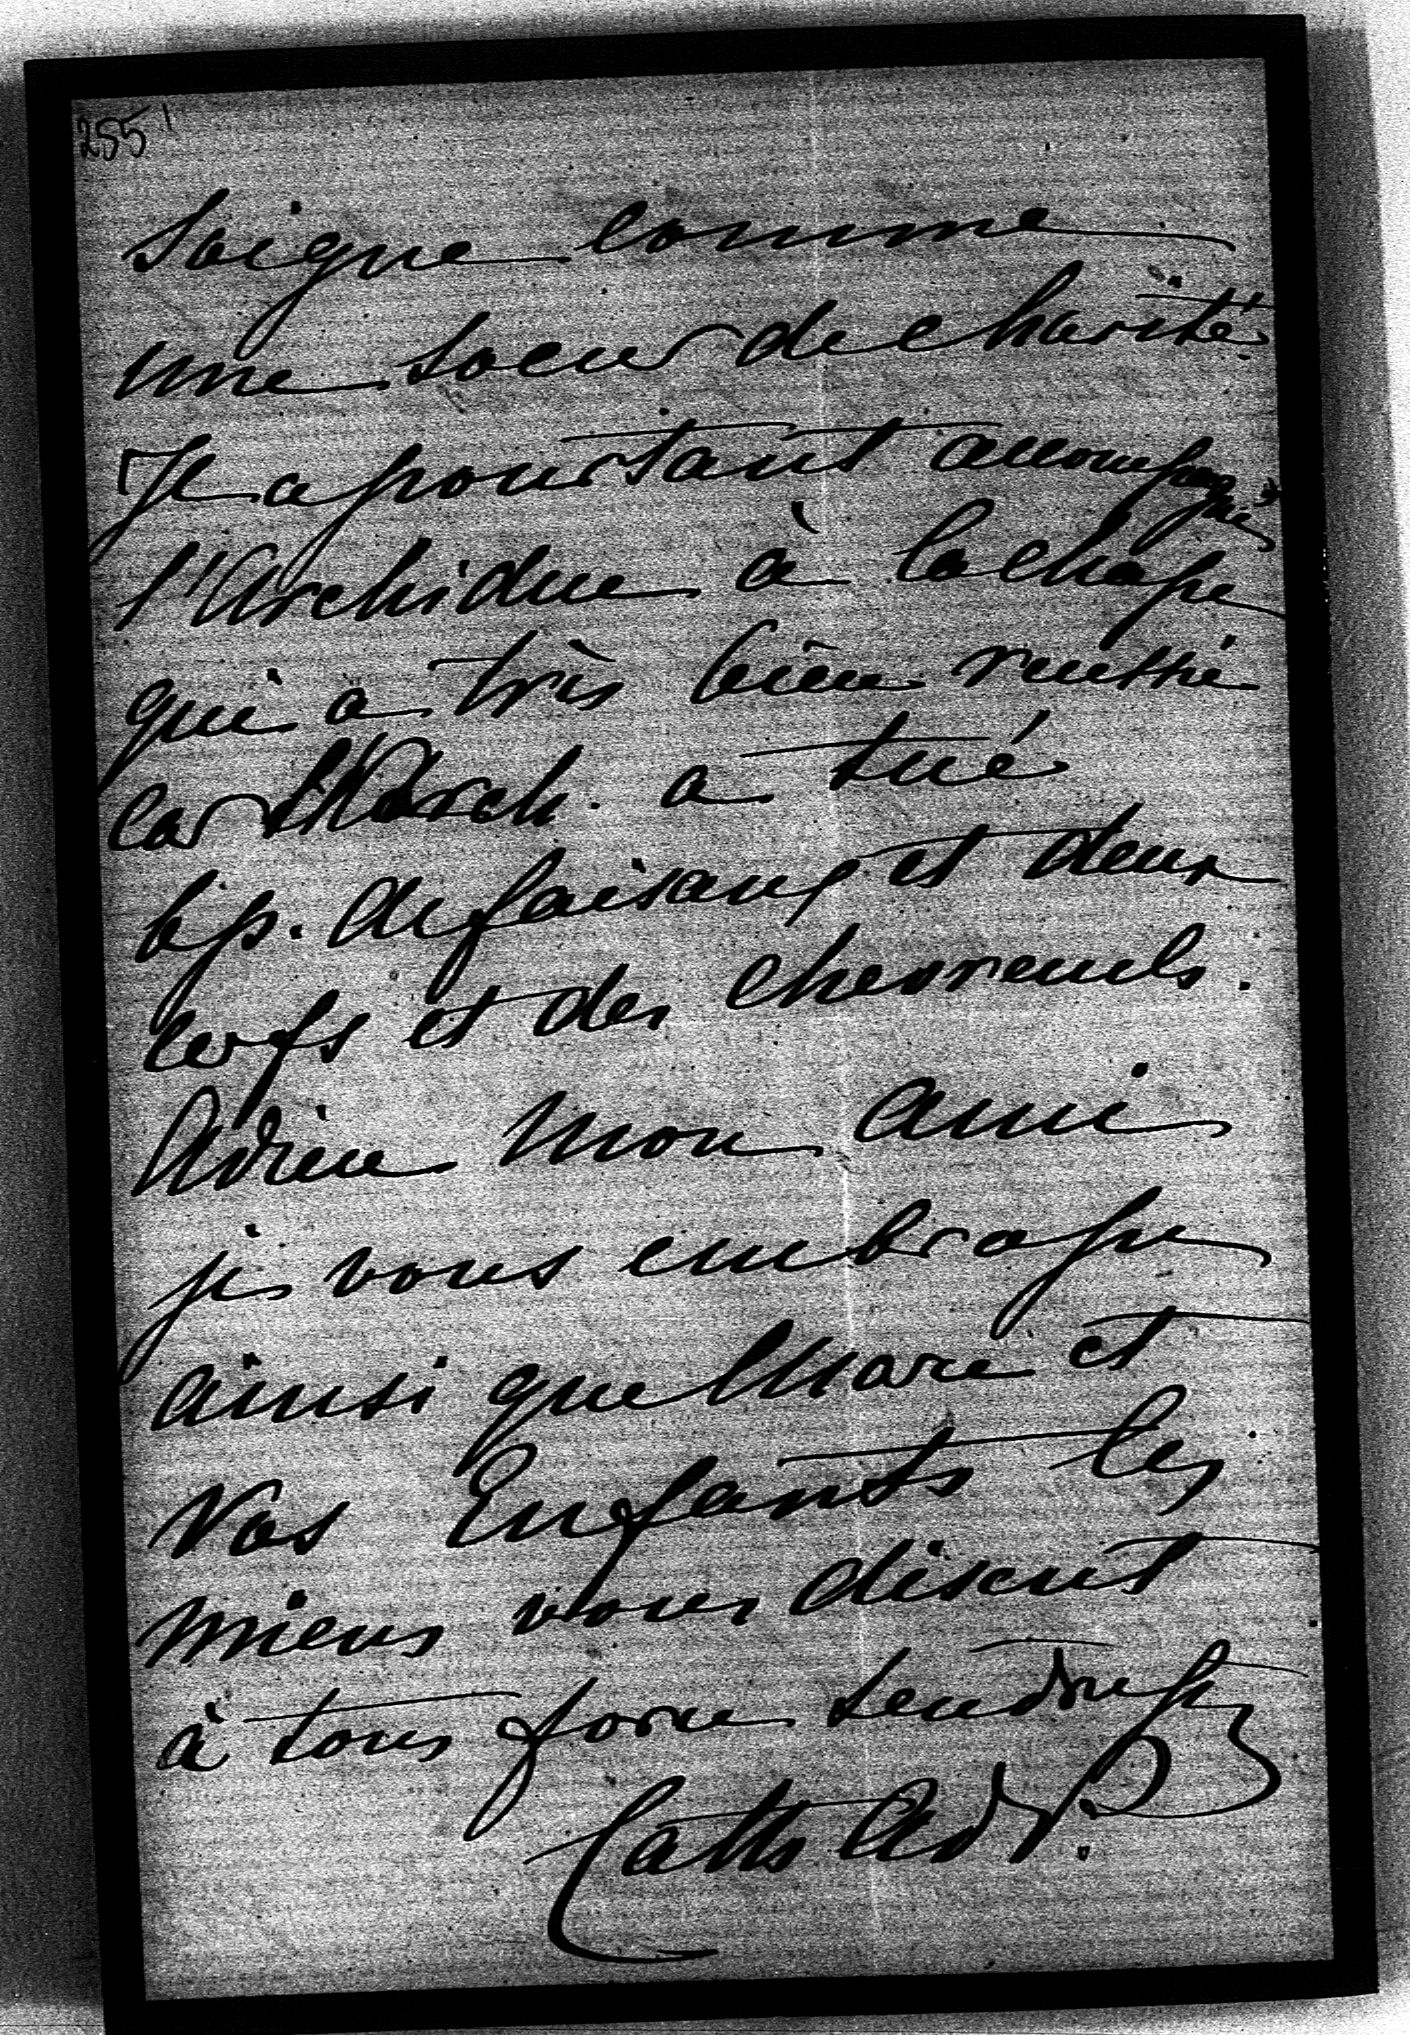 255
soigne comme
une soeur de charité
Il a pourtant accompagné
l'Archiduc à la chasse
qui a très bien
car l'Arch. a tué
de faisans et deux
cerfs et des chevreuils.
Adieu mon ami
je vous embrasse
ainsi que Marie et
vos Enfants les
miens vous disent
à tous